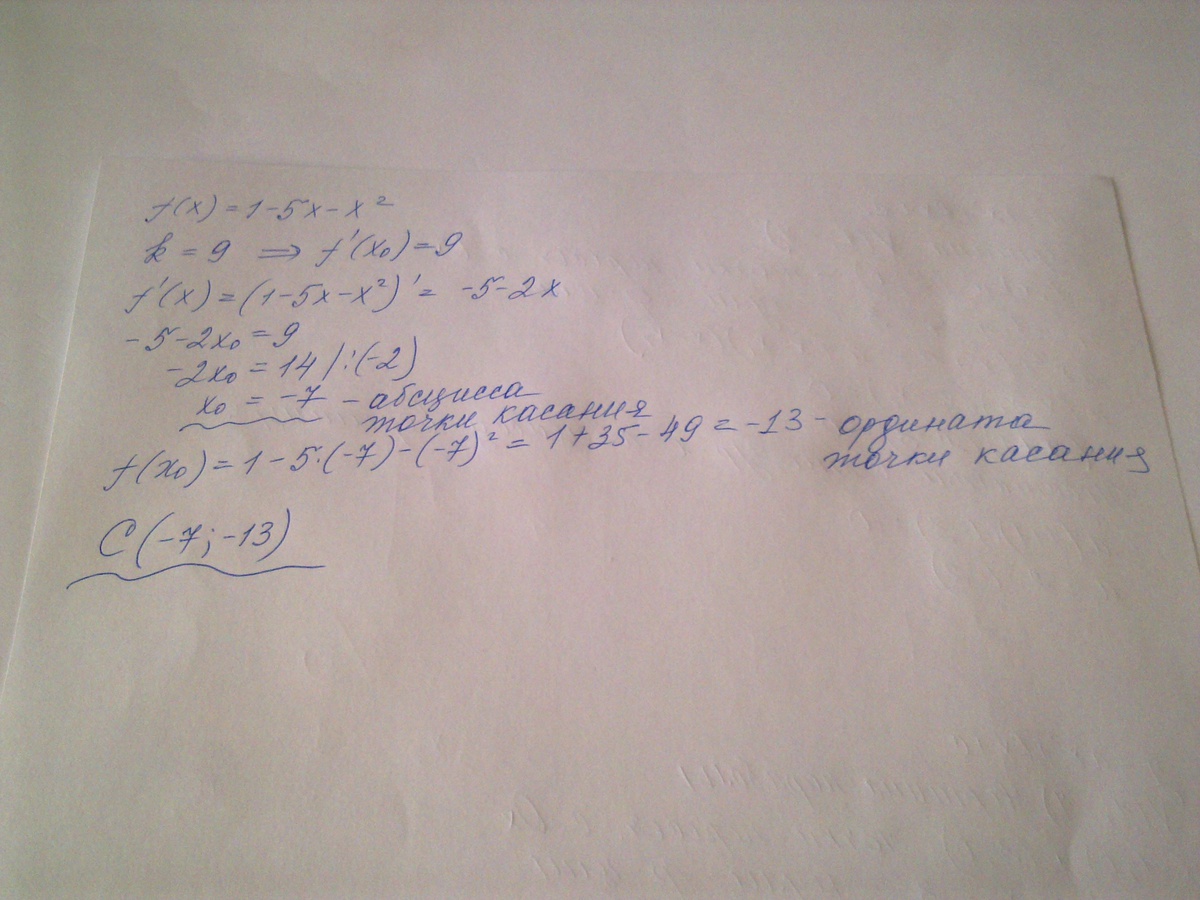 f(x) = 1 - 5x - x²
k = 9 ⇒ f'(x₀) = 9
f'(x) = (1 - 5x - x²)' = -5 - 2x
-5 - 2x₀ = 9
-2x₀ = 14 /:(-2)
x₀ = -7 - абсцисса
точки касания
f(x₀) = 1 - 5·(-7) - (-7)² = 1 + 35 - 49 = -13 - ордината
точки касания
C(-7; -13)